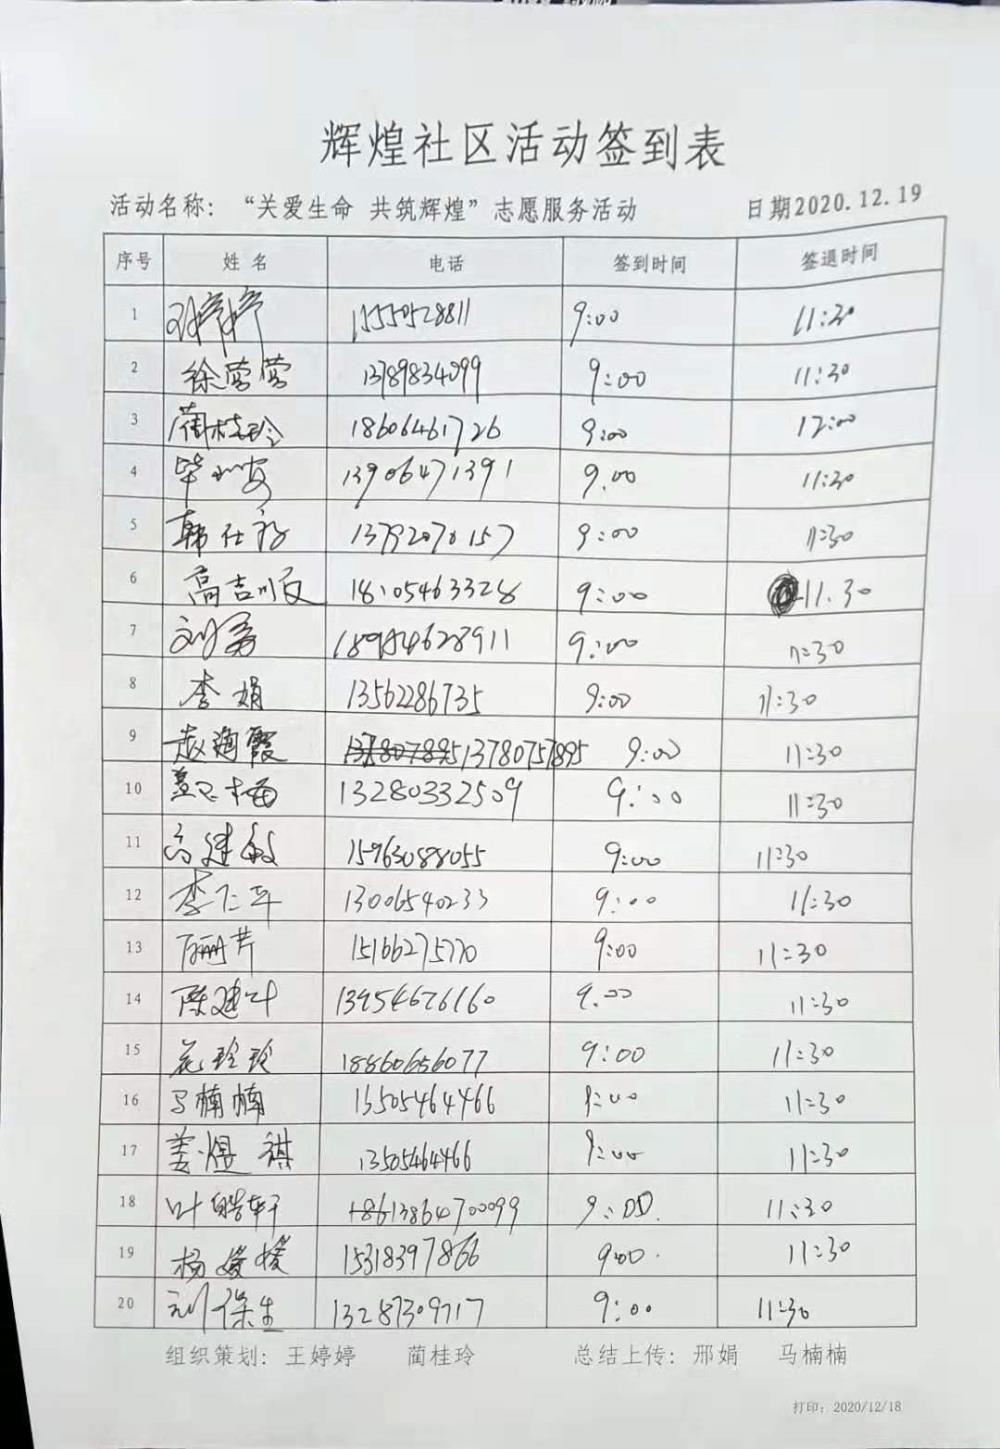 辉煌社区活动签到表
活动名称：“关爱生命 共筑辉煌”志愿服务活动 日期2020.12.19
序号 姓名 电话 签到时间 签退时间
1 13550528811 9:00 11:30
2 徐莺莺 13789834099 9:00 11:30
3 蔺桂玲 18606461726 9:00 12:00
4 13906471391 9.00 11:30
5 韩仕 13792070157 9:00 11:30
6 高吉顺 18105463328 9:00 11.30
7 刘勇 9:00 11:30
8 李娟 13562286735 9:00 11:30
9 赵海霞 13780757895 9:00 11:30
10 梅 13280332509 9:00 11:30
11 高建敏 15963088055 9:00 11:30
12 李仁平 13006540233 9:00 11:30
13 芹 15166275770 9:00 11:30
14 陈建叶 13954676160 9.00 11:30
15 花玲玲 18860656077 9:00 11:30
16 马楠楠 13505464466 9:00 11:30
17 姜煜祺 13505464466 9:00 11:30
18 叶皓轩 +8613864700099 9:00. 11:30
19 杨媛媛 15318397866 9:00 11:30
20 刘保生 13287309717 9:00 11:30
组织策划：王婷婷 蔺桂玲 总结上传：邢娟 马楠楠
打印：2020/12/18